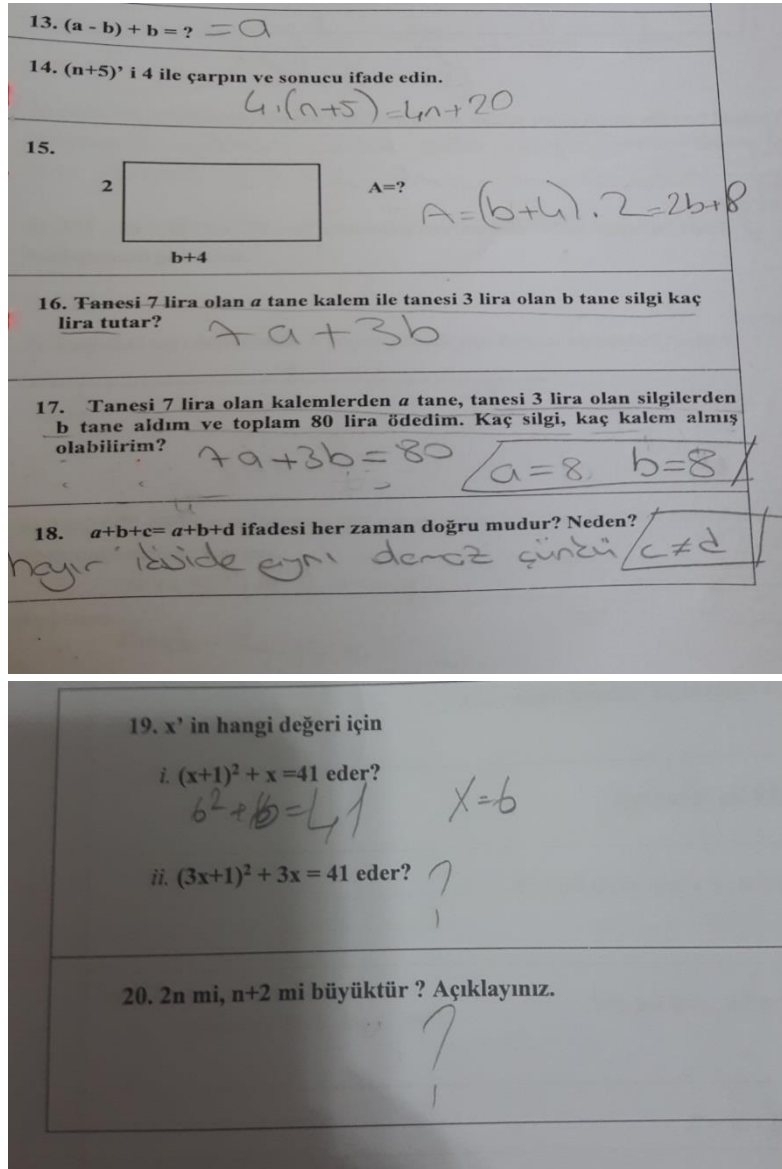 13. (a - b) + b = ? = a
14. (n+5)' i 4 ile çarpın ve sonucu ifade edin.
4.(n+5)=4n+20
15.
2 A=? A=(b+4).2=2b+8
b+4
16. Tanesi 7 lira olan a tane kalem ile tanesi 3 lira olan b tane silgi kaç
lira tutar? 7a+3b
17. Tanesi 7 lira olan kalemlerden a tane, tanesi 3 lira olan silgilerden
b tane aldım ve toplam 80 lira ödedim. Kaç silgi, kaç kalem almış
olabilirim? 7a+3b=80 a=8 b=8
18. a+b+c= a+b+d ifadesi her zaman doğru mudur? Neden?
hayır ikiside aynı demez çünkü c≠d
19. x' in hangi değeri için
i. (x+1)² + x =41 eder?
6²+6=41 X=6
ii. (3x+1)² + 3x = 41 eder? ?
20. 2n mi, n+2 mi büyüktür ? Açıklayınız.
?